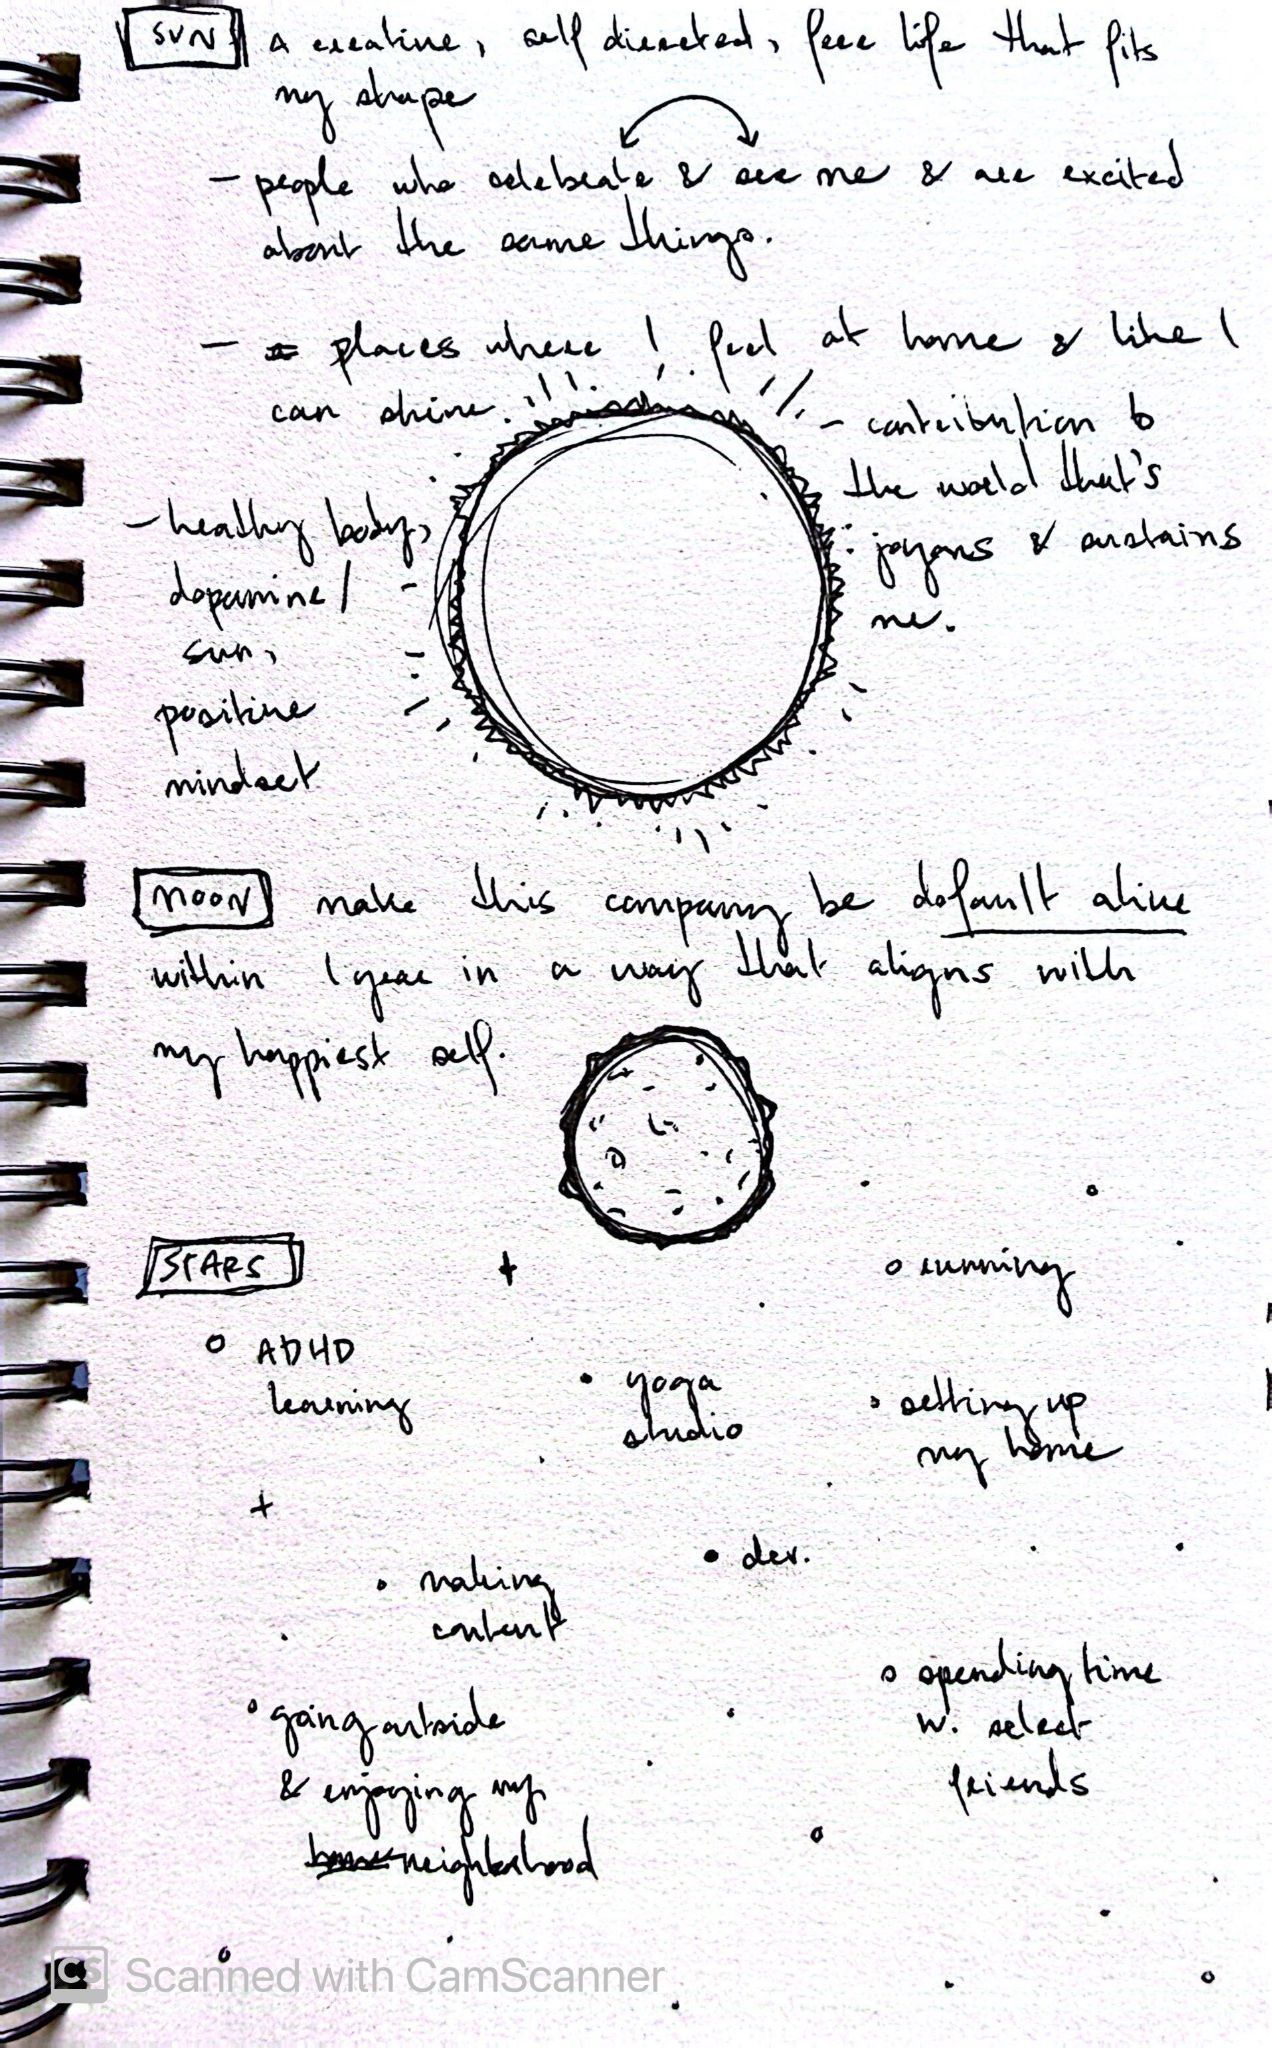 SUN a creative, self directed, free life that fits
my shape
- people who celebrate & see me & are excited
about the same things.
- places where I feel at home & like I
can shine.
- contribution to
the world that's
joyous & sustains
me.
- healthy body,
dopamine/
sun,
positive
mindset
MOON make this company be default alive
within 1 year in a way that aligns with
my happiest self.
STARS
running
ADHD
learning
yoga
studio
setting up
my home
dev.
making
content
spending time
w. select
friends
going outside
& enjoying my
neighborhood
CS Scanned with CamScanner